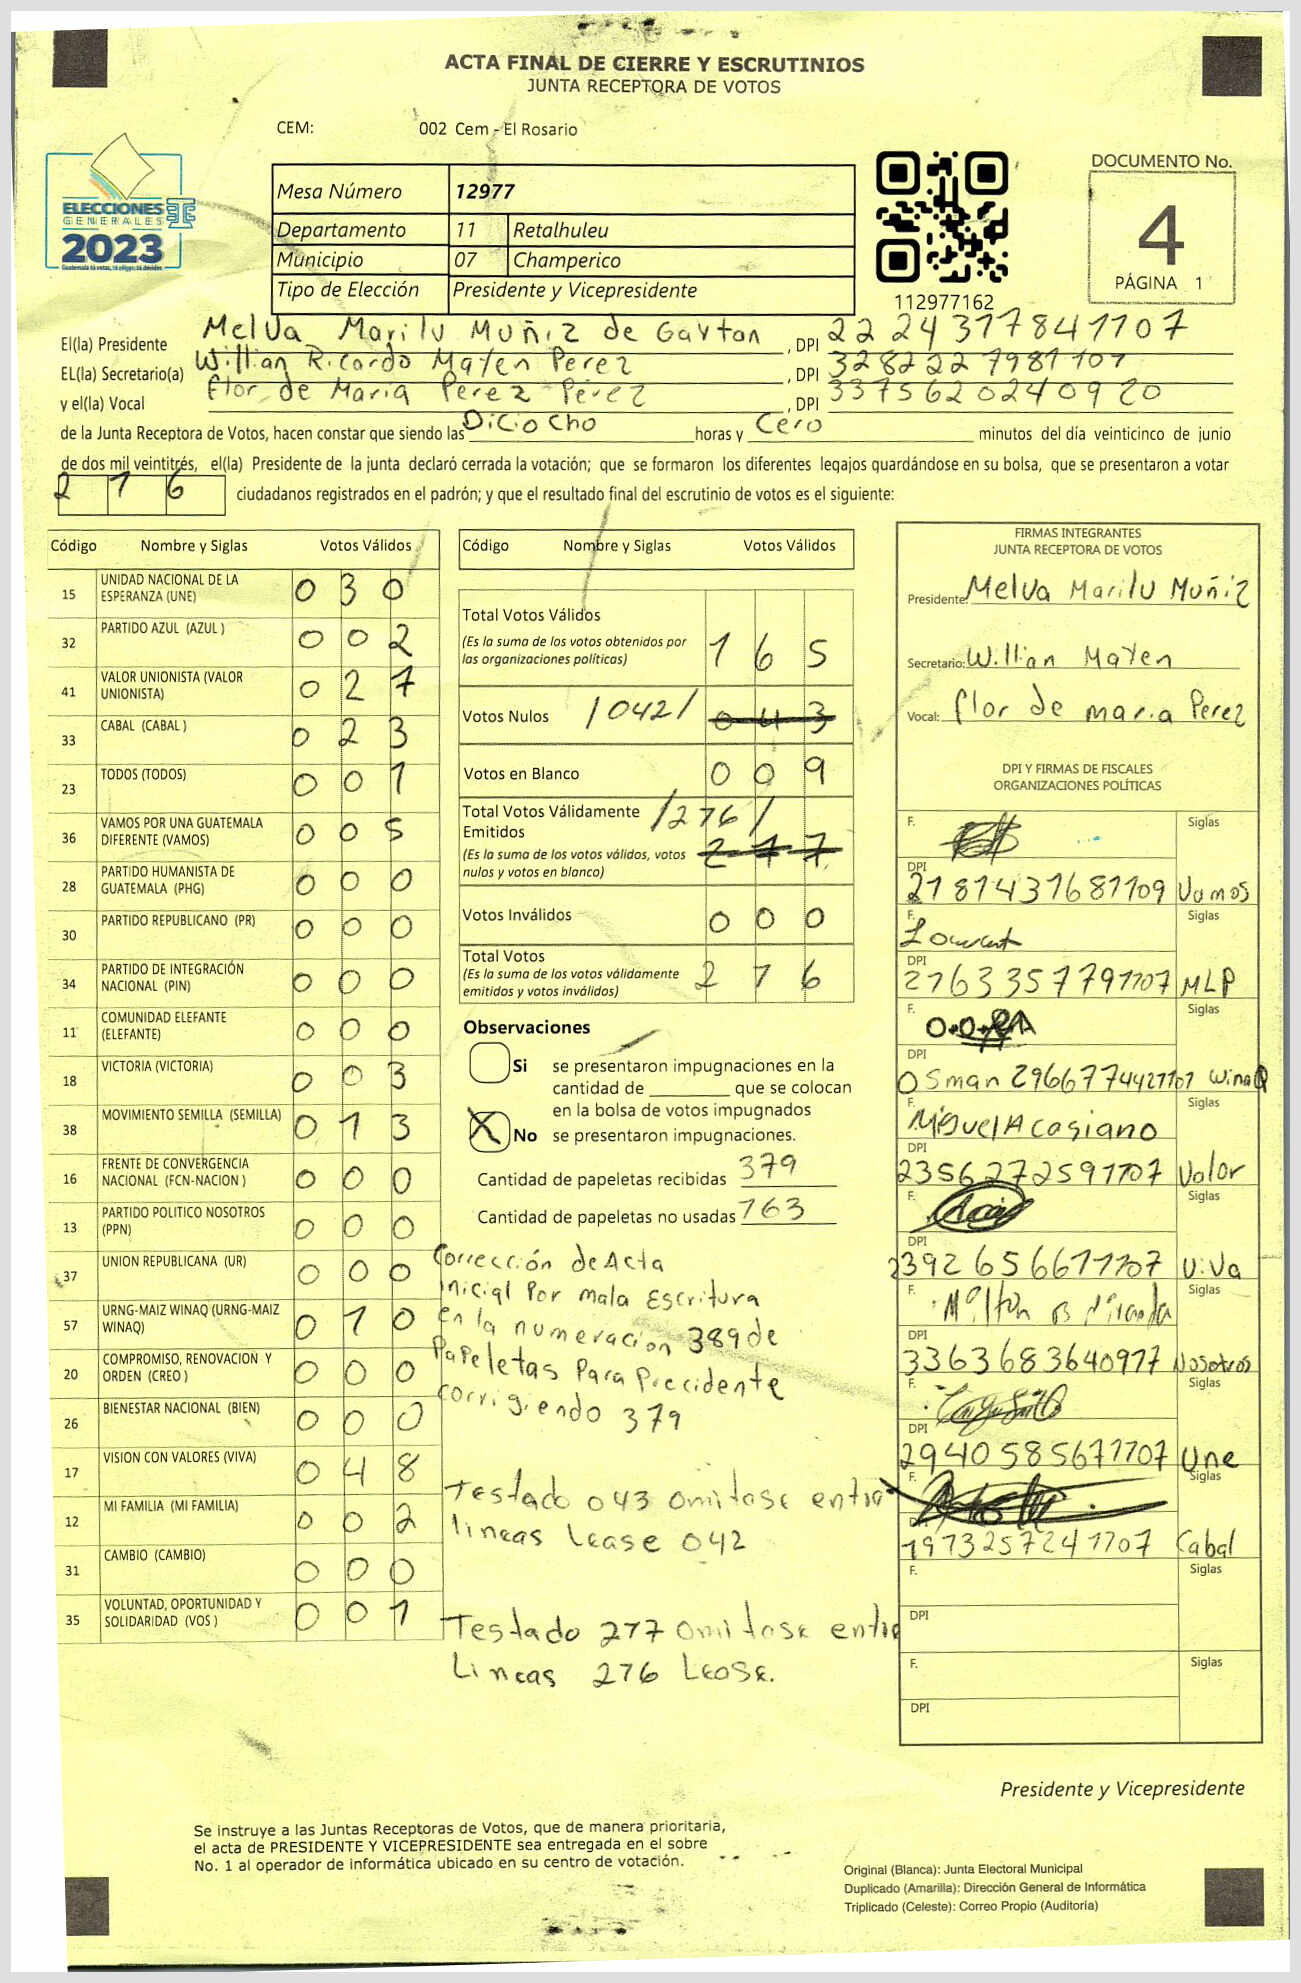 ACTA FINAL DE CIERRE Y ESCRUTINIOS
JUNTA RECEPTORA DE VOTOS
CEM: 002 Cem - El Rosario
ELECCIONES
GENERALES
2023
Guatemala tú votas, tú eliges, tú decides
Mesa Número 12977
Departamento 11 Retalhuleu
Municipio 07 Champerico
Tipo de Elección Presidente y Vicepresidente
112977162
DOCUMENTO No.
4
PÁGINA 1
El(la) Presidente Melva Marilu Muñiz de Gaytan, DPI 2224317841107
EL(la) Secretario(a) Willian Ricardo Mayen Perez, DPI 3282227981107
y el(la) Vocal Flor de Maria Perez Perez, DPI 3375620240920
de la Junta Receptora de Votos, hacen constar que siendo las Diciocho horas y Cero minutos del día veinticinco de junio
de dos mil veintitrés, el(la) Presidente de la junta declaró cerrada la votación; que se formaron los diferentes legajos guardándose en su bolsa, que se presentaron a votar
216 ciudadanos registrados en el padrón; y que el resultado final del escrutinio de votos es el siguiente:
Código Nombre y Siglas Votos Válidos
15 UNIDAD NACIONAL DE LA ESPERANZA (UNE) 030
32 PARTIDO AZUL (AZUL ) 002
41 VALOR UNIONISTA (VALOR UNIONISTA) 027
33 CABAL (CABAL ) 023
23 TODOS (TODOS) 001
36 VAMOS POR UNA GUATEMALA DIFERENTE (VAMOS) 005
28 PARTIDO HUMANISTA DE GUATEMALA (PHG) 000
30 PARTIDO REPUBLICANO (PR) 000
34 PARTIDO DE INTEGRACIÓN NACIONAL (PIN) 000
11 COMUNIDAD ELEFANTE (ELEFANTE) 000
18 VICTORIA (VICTORIA) 003
38 MOVIMIENTO SEMILLA (SEMILLA) 013
16 FRENTE DE CONVERGENCIA NACIONAL (FCN-NACION ) 000
13 PARTIDO POLITICO NOSOTROS (PPN) 000
37 UNION REPUBLICANA (UR) 000
57 URNG-MAIZ WINAQ (URNG-MAIZ WINAQ) 010
20 COMPROMISO, RENOVACION Y ORDEN (CREO ) 000
26 BIENESTAR NACIONAL (BIEN) 000
17 VISION CON VALORES (VIVA) 048
12 MI FAMILIA (MI FAMILIA) 002
31 CAMBIO (CAMBIO) 000
35 VOLUNTAD, OPORTUNIDAD Y SOLIDARIDAD (VOS ) 001
Código Nombre y Siglas Votos Válidos
Total Votos Válidos
(Es la suma de los votos obtenidos por las organizaciones políticas) 165
Votos Nulos /042/ 043
Votos en Blanco 009
Total Votos Válidamente Emitidos /216/
(Es la suma de los votos válidos, votos nulos y votos en blanco) 217
Votos Inválidos 000
Total Votos
(Es la suma de los votos válidamente emitidos y votos inválidos) 216
Observaciones
Si se presentaron impugnaciones en la
cantidad de ________ que se colocan
en la bolsa de votos impugnados
X No se presentaron impugnaciones.
Cantidad de papeletas recibidas 379
Cantidad de papeletas no usadas 163
Corrección de Acta
inicial Por mala Escritura
en la numeración 389 de
Papeletas Para Precidente
corrigiendo 379
Testado 043 Omitase entre
lineas Lease 042
Testado 217 Omitase entre
Lineas 216 Lease.
FIRMAS INTEGRANTES
JUNTA RECEPTORA DE VOTOS
Presidente: Melva Marilu Muñiz
Secretario: Willian Mayen
Vocal: flor de maria Perez
DPI Y FIRMAS DE FISCALES
ORGANIZACIONES POLÍTICAS
F. Siglas
DPI 2181431681109 Vamos
F. Siglas
DPI 2163357791107 MLP
F. Siglas
DPI Osman 2966774421107 WinaQ
F. Miguel A casiano Siglas
DPI 2356272591107 Valor
F. Siglas
DPI 2392656611107 ViVa
F. Milton Siglas
DPI 3363683640911 Nosotros
F. Siglas
DPI 2940585671107 Une
F. Siglas
DPI 1973257241107 Cabal
F. Siglas
DPI
F. Siglas
DPI
Presidente y Vicepresidente
Se instruye a las Juntas Receptoras de Votos, que de manera prioritaria,
el acta de PRESIDENTE Y VICEPRESIDENTE sea entregada en el sobre
No. 1 al operador de informática ubicado en su centro de votación.
Original (Blanca): Junta Electoral Municipal
Duplicado (Amarilla): Dirección General de Informática
Triplicado (Celeste): Correo Propio (Auditoría)